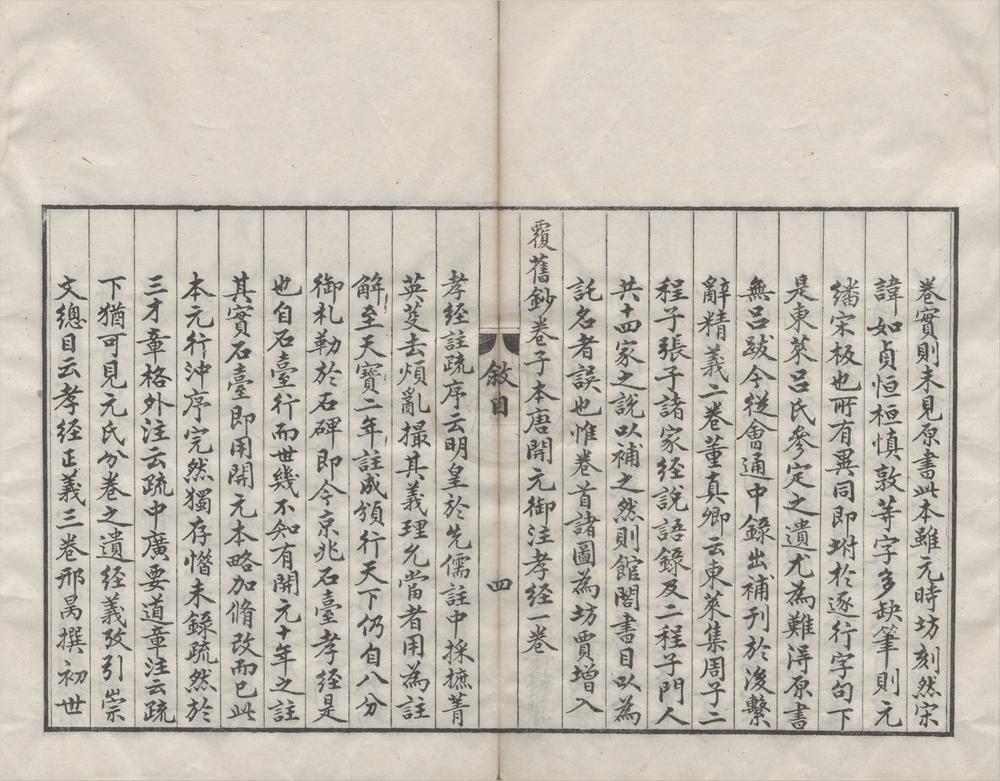 卷實則未見原書此本雖元時坊刻然宋
諱如貞恒桓慎敦等字多缺筆則元
繙宋板也所有異同即坿於逐行字句下
是東萊呂氏參定之遺尤為難淂原書
無呂跋今從會通中錄出補刊於後繫
辭精義二卷董真卿云東萊集周子二
程子張子諸家經說語錄及二程子門人
共十四家之說以補之然則館閣書目以為
託名者誤也惟卷首諸圖為坊賈增入
覆舊鈔卷子本唐開元御注孝經一卷
敘目
四
孝經註疏序云明皇於先儒註中採摭菁
英芟去煩亂撮其義理允當者用為註
解至天寶二年註成頒行天下仍自八分
御札勒於石碑即今京兆石臺孝經是
也自石臺行而世幾不知有開元十年之註
其實石臺即用開元本略加脩改而已此
本元行沖序完然獨存惜未錄疏然於
三才章格外注云疏中廣要道章注云疏
下猶可見元氏分卷之遺經義攷引崇
文總目云孝經正義三卷邢昺撰初世